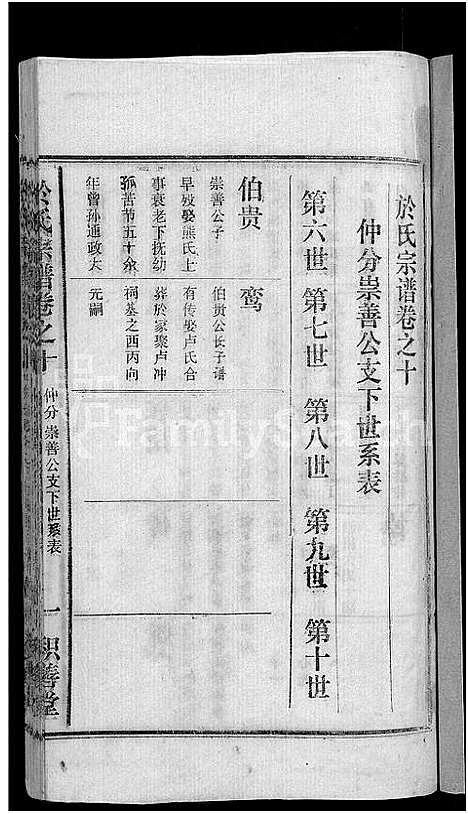 於氏宗谱卷之十
仲分崇善公支下世系表
第六世 第七世 第八世 第九世 第十世
伯贵
崇善公子
早殁娶熊氏上
事衰老下抚幼
孤苦节五十余
年曾孙通政大
鸾
伯贵公长子谱
有传娶卢氏合
葬於家聚卢冲
祠基之西丙向
元嗣
於氏宗谱卷之十
仲分崇善公支下世系表
一
积善堂